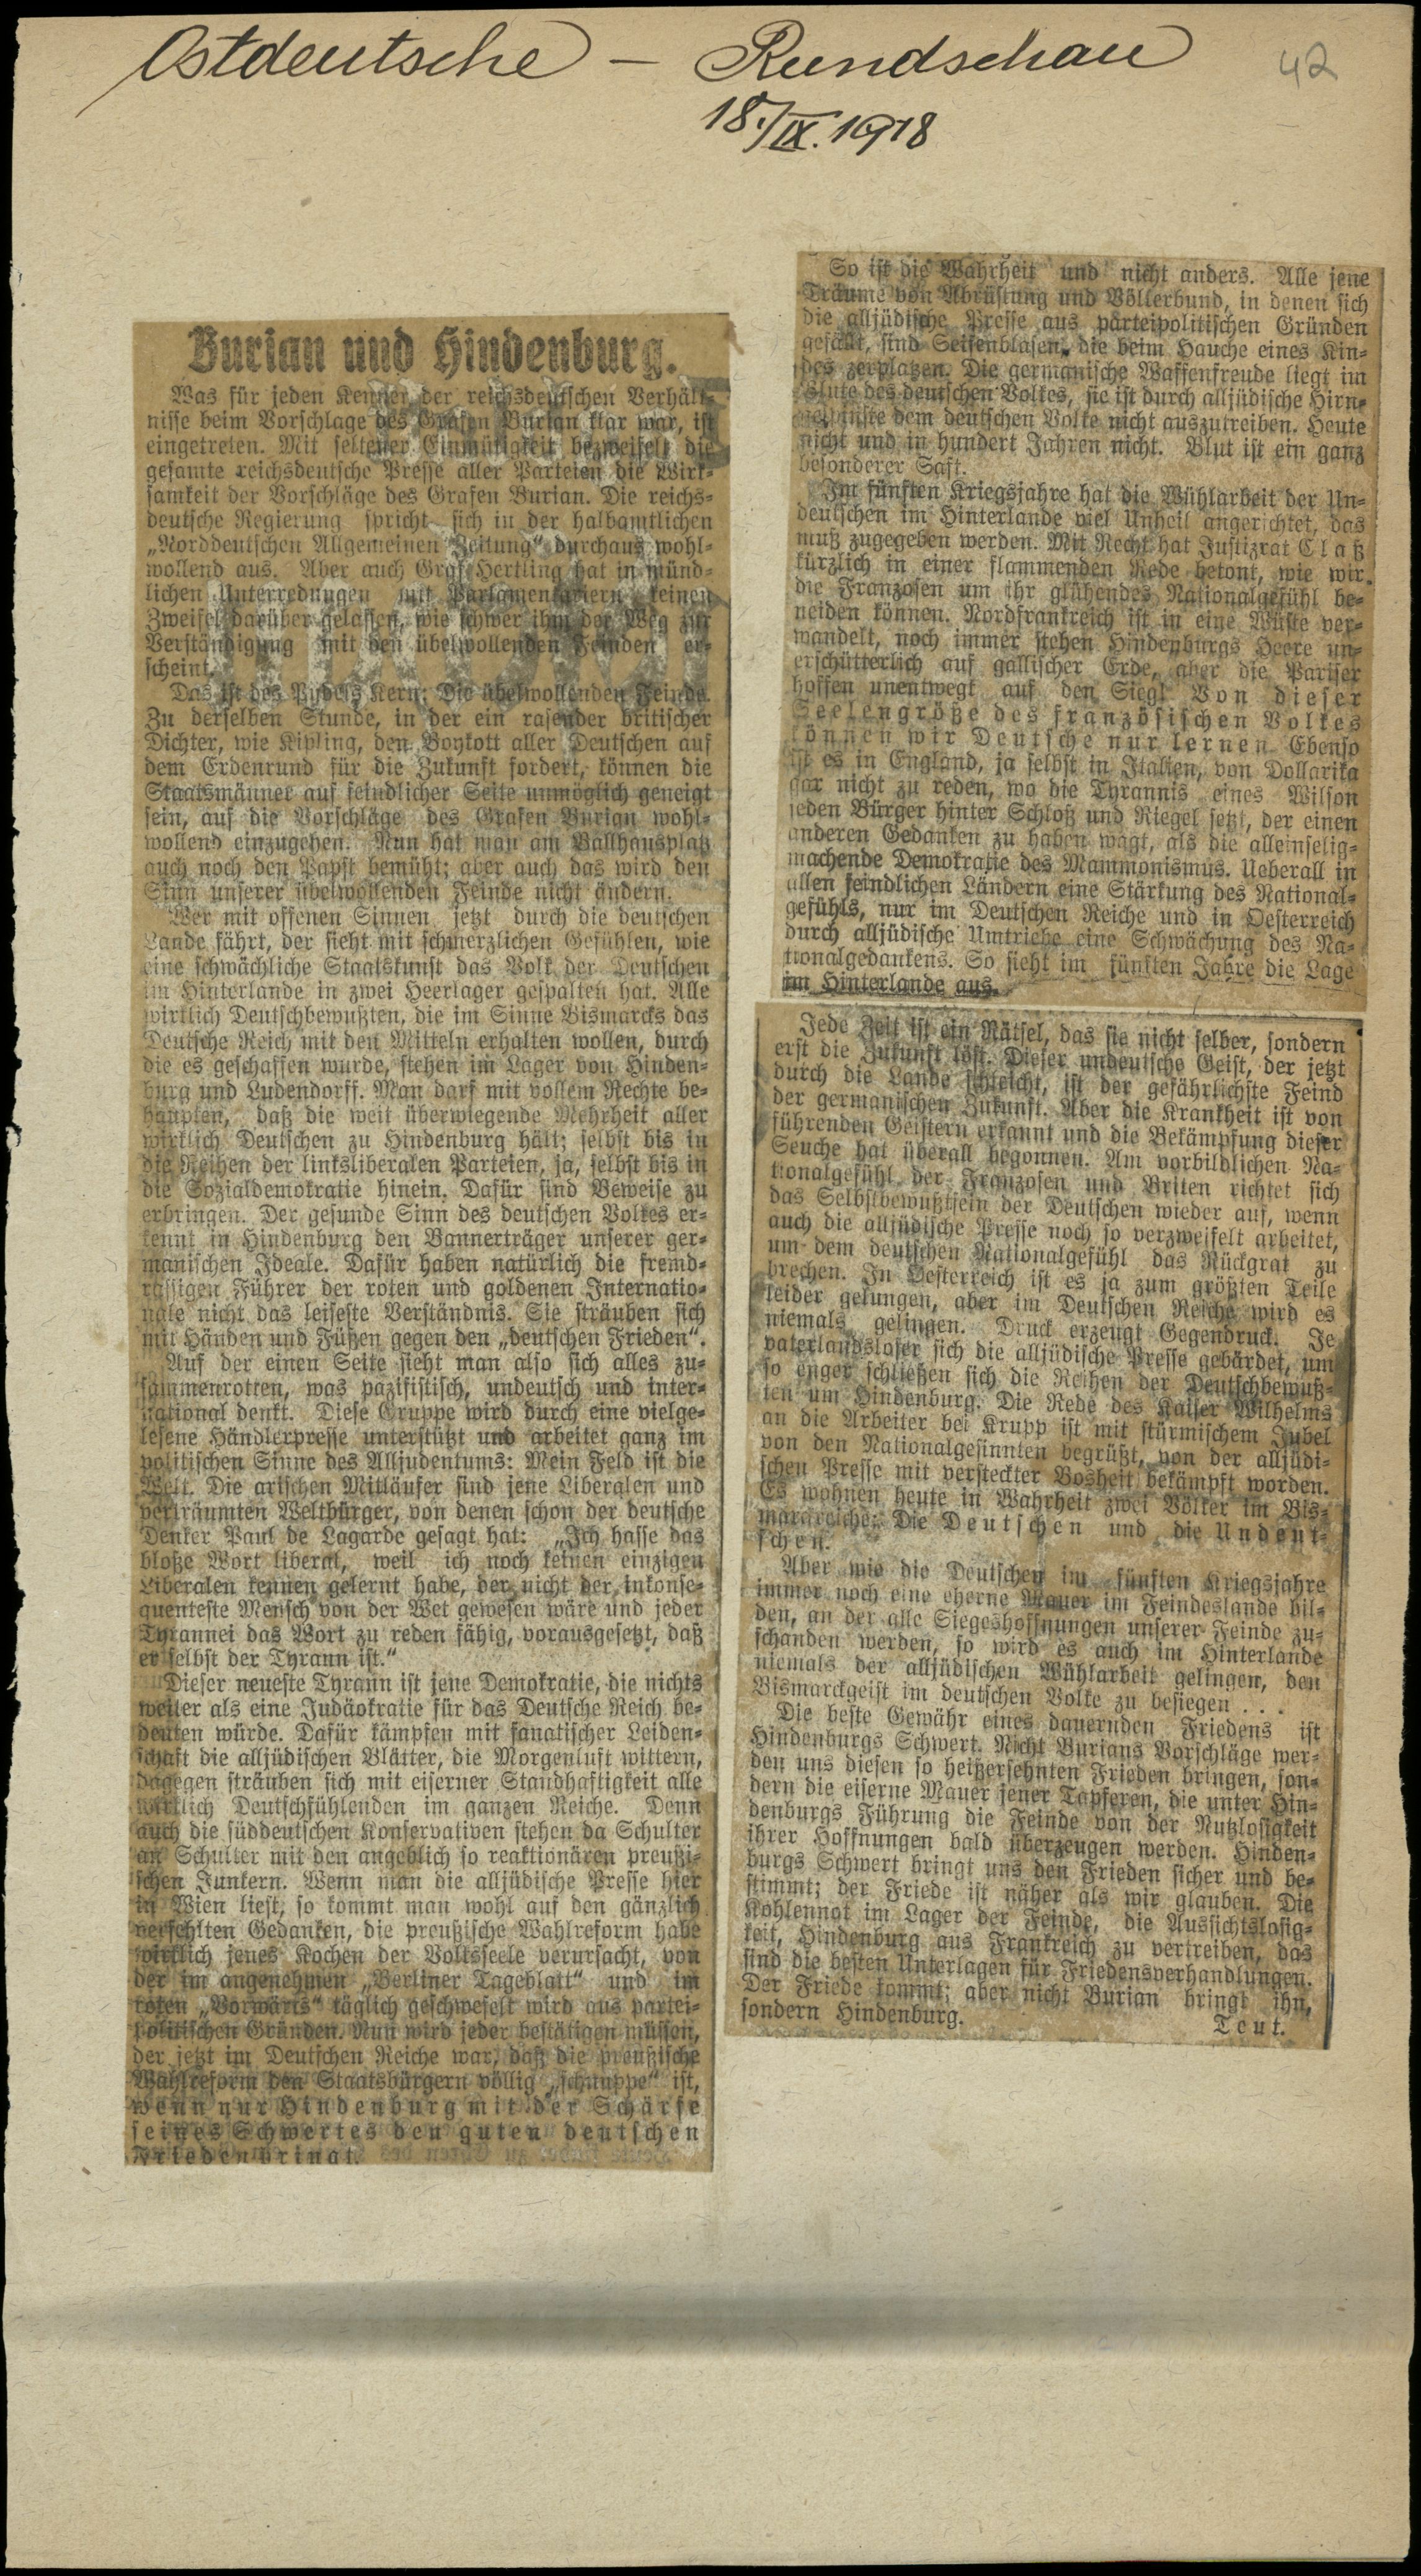 Ostdeutsche – Rundschau
42
18./IX. 1918
Burian und Hindenburg.
Was für jeden Kenner der reichsdeutschen Verhält-
nisse beim Vorschlage des Grafen Burian klar war, ist
eingetreten. Mit seltener Einmütigkeit bezweifelt die
gesamte reichsdeutsche Presse aller Parteien die Wirk-
samkeit der Vorschläge des Grafen Burian. Die reichs-
deutsche Regierung spricht sich in der halbamtlichen
„Norddeutschen Allgemeinen Zeitung“ durchaus wohl-
wollend aus. Aber auch Graf Hertling hat in münd-
lichen Unterredungen mit Parlamentariern keinen
Zweifel darüber gelassen, wie schwer ihm der Weg zur
Verständigung mit den übelwollenden Feinden er-
scheint.
Das ist des Pudels Kern: Die übelwollenden Feinde.
Zu derselben Stunde, in der ein rasender britischer
Dichter, wie Kipling, den Boykott aller Deutschen auf
dem Erdenrund für die Zukunft fordert, können die
Staatsmänner auf feindlicher Seite unmöglich geneigt
sein, auf die Vorschläge des Grafen Burian wohl-
wollend einzugehen. Nun hat man am Ballhausplatz
auch noch den Papst bemüht; aber auch das wird den
Sinn unserer übelwollenden Feinde nicht ändern.
Wer mit offenen Sinnen jetzt durch die deutschen
Lande fährt, der sieht mit schmerzlichen Gefühlen, wie
eine schwächliche Staatskunst das Volk der Deutschen
im Hinterlande in zwei Heerlager gespalten hat. Alle
wirklich Deutschbewußten, die im Sinne Bismarcks das
Deutsche Reich mit den Mitteln erhalten wollen, durch
die es geschaffen wurde, stehen im Lager von Hinden-
burg und Ludendorff. Man darf mit vollem Rechte be-
haupten, daß die weit überwiegende Mehrheit aller
wirklich Deutschen zu Hindenburg hält; selbst bis in
die Reihen der linksliberalen Parteien, ja, selbst bis in
die Sozialdemokratie hinein. Dafür sind Beweise zu
erbringen. Der gesunde Sinn des deutschen Volkes er-
kennt in Hindenburg den Bannerträger unserer ger-
manischen Ideale. Dafür haben natürlich die fremd-
rassigen Führer der roten und goldenen Internatio-
nale nicht das leiseste Verständnis. Sie sträuben sich
mit Händen und Füßen gegen den „deutschen Frieden“.
Auf der einen Seite sieht man also sich alles zu-
sammenrotten, was pazifistisch, undeutsch und inter-
national denkt. Diese Gruppe wird durch eine vielge-
lesene Händlerpresse unterstützt und arbeitet ganz im
politischen Sinne des Alljudentums: Mein Feld ist die
Welt. Die arischen Mitläufer sind jene Liberalen und
verträumten Weltbürger, von denen schon der deutsche
Denker Paul de Lagarde gesagt hat: „Ich hasse das
bloße Wort liberal, weil ich noch keinen einzigen
Liberalen kennen gelernt habe, der nicht der inkonse-
quenteste Mensch von der Wet gewesen wäre und jeder
Tyrannei das Wort zu reden fähig, vorausgesetzt, daß
er selbst der Tyrann ist.“
Dieser neueste Tyrann ist jene Demokratie, die nichts
weiter als eine Judäokratie für das Deutsche Reich be-
deuten würde. Dafür kämpfen mit fanatischer Leiden-
schaft die alljüdischen Blätter, die Morgenluft wittern,
dagegen sträuben sich mit eiserner Standhaftigkeit alle
wirklich Deutschfühlenden im ganzen Reiche. Denn
auch die süddeutschen Konservativen stehen da Schulter
an Schulter mit den angeblich so reaktionären preußi-
schen Junkern. Wenn man die alljüdische Presse hier
in Wien liest, so kommt man wohl auf den gänzlich
verfehlten Gedanken, die preußische Wahlreform habe
wirklich jenes Kochen der Volksseele verursacht, von
der im angenehmen „Berliner Tageblatt“ und im
roten „Vorwärts“ täglich geschwefelt wird aus partei-
politischen Gründen. Nun wird jeder bestätigen müssen,
der jetzt im Deutschen Reiche war, daß die preußische
Wahlreform den Staatsbürgern völlig „schnuppe“ ist,
wenn nur Hindenburg mit der Schärfe
seines Schwertes den guten deutschen
Frieden bringt.
So ist die Wahrheit und nicht anders. Alle jene
Träume von Abrüstung und Völkerbund, in denen sich
die alljüdische Presse aus parteipolitischen Gründen
gefällt, sind Seifenblasen, die beim Hauche eines Kin-
des zerplatzen. Die germanische Waffenfreude liegt im
Blute des deutschen Volkes, sie ist durch alljüdische Hirn-
gespinste dem deutschen Volke nicht auszutreiben. Heute
nicht und in hundert Jahren nicht. Blut ist ein ganz
besonderer Saft.
Im fünften Kriegsjahre hat die Wühlarbeit der Un-
deutschen im Hinterlande viel Unheil angerichtet, das
muß zugegeben werden. Mit Recht hat Justizrat Claß
kürzlich in einer flammenden Rede betont, wie wir
die Franzosen um ihr glühendes Nationalgefühl be-
neiden können. Nordfrankreich ist in eine Wüste ver-
wandelt, noch immer stehen Hindenburgs Heere un-
erschütterlich auf gallischer Erde, aber die Pariser
hoffen unentwegt auf den Sieg! Von dieser
Seelengröße des französischen Volkes
können wir Deutsche nur lernen. Ebenso
ist es in England, ja selbst in Italien, von Dollarika
gar nicht zu reden, wo die Tyrannis eines Wilson
jeden Bürger hinter Schloß und Riegel setzt, der einen
anderen Gedanken zu haben wagt, als die alleinselig-
machende Demokratie des Mammonismus. Ueberall in
allen feindlichen Ländern eine Stärkung des National-
gefühls, nur im Deutschen Reiche und in Oesterreich
durch alljüdische Umtriebe eine Schwächung des Na-
tionalgedankens. So sieht im fünften Jahre die Lage
im Hinterlande aus.
Jede Zeit ist ein Rätsel, das sie nicht selber, sondern
erst die Zukunft löst. Dieser undeutsche Geist, der jetzt
durch die Lande schleicht, ist der gefährlichste Feind
der germanischen Zukunft. Aber die Krankheit ist von
führenden Geistern erkannt und die Bekämpfung dieser
Seuche hat überall begonnen. Am vorbildlichen Na-
tionalgefühl der Franzosen und Briten richtet sich
das Selbstbewußtsein der Deutschen wieder auf, wenn
auch die alljüdische Presse noch so verzweifelt arbeitet,
um dem deutschen Nationalgefühl das Rückgrat zu
brechen. In Oesterreich ist es ja zum größten Teile
leider gelungen, aber im Deutschen Reiche wird es
niemals gelingen. Druck erzeugt Gegendruck. Je
vaterlandsloser sich die alljüdische Presse gebärdet, um
so enger schließen sich die Reihen der Deutschbewuß-
ten um Hindenburg. Die Rede des Kaiser Wilhelms
an die Arbeiter bei Krupp ist mit stürmischem Jubel
von den Nationalgesinnten begrüßt, von der alljüdi-
schen Presse mit versteckter Bosheit bekämpft worden.
Es wohnen heute in Wahrheit zwei Völker im Bis-
marckreiche: Die Deutschen und die Undeut-
schen.
Aber wie die Deutschen im fünften Kriegsjahre
immer noch eine eherne Mauer im Feindeslande bil-
den, an der alle Siegeshoffnungen unserer Feinde zu-
schanden werden, so wird es auch im Hinterlande
niemals der alljüdischen Wühlarbeit gelingen, den
Bismarckgeist im deutschen Volke zu besiegen . . .
Die beste Gewähr eines dauernden Friedens ist
Hindenburgs Schwert. Nicht Burians Vorschläge wer-
den uns diesen so heißersehnten Frieden bringen, son-
dern die eiserne Mauer jener Tapferen, die unter Hin-
denburgs Führung die Feinde von der Nutzlosigkeit
ihrer Hoffnungen bald überzeugen werden. Hinden-
burgs Schwert bringt uns den Frieden sicher und be-
stimmt; der Friede ist näher als wir glauben. Die
Kohlennot im Lager der Feinde, die Aussichtslosig-
keit, Hindenburg aus Frankreich zu vertreiben, das
sind die besten Unterlagen für Friedensverhandlungen.
Der Friede kommt; aber nicht Burian bringt ihn,
sondern Hindenburg.
Teut.